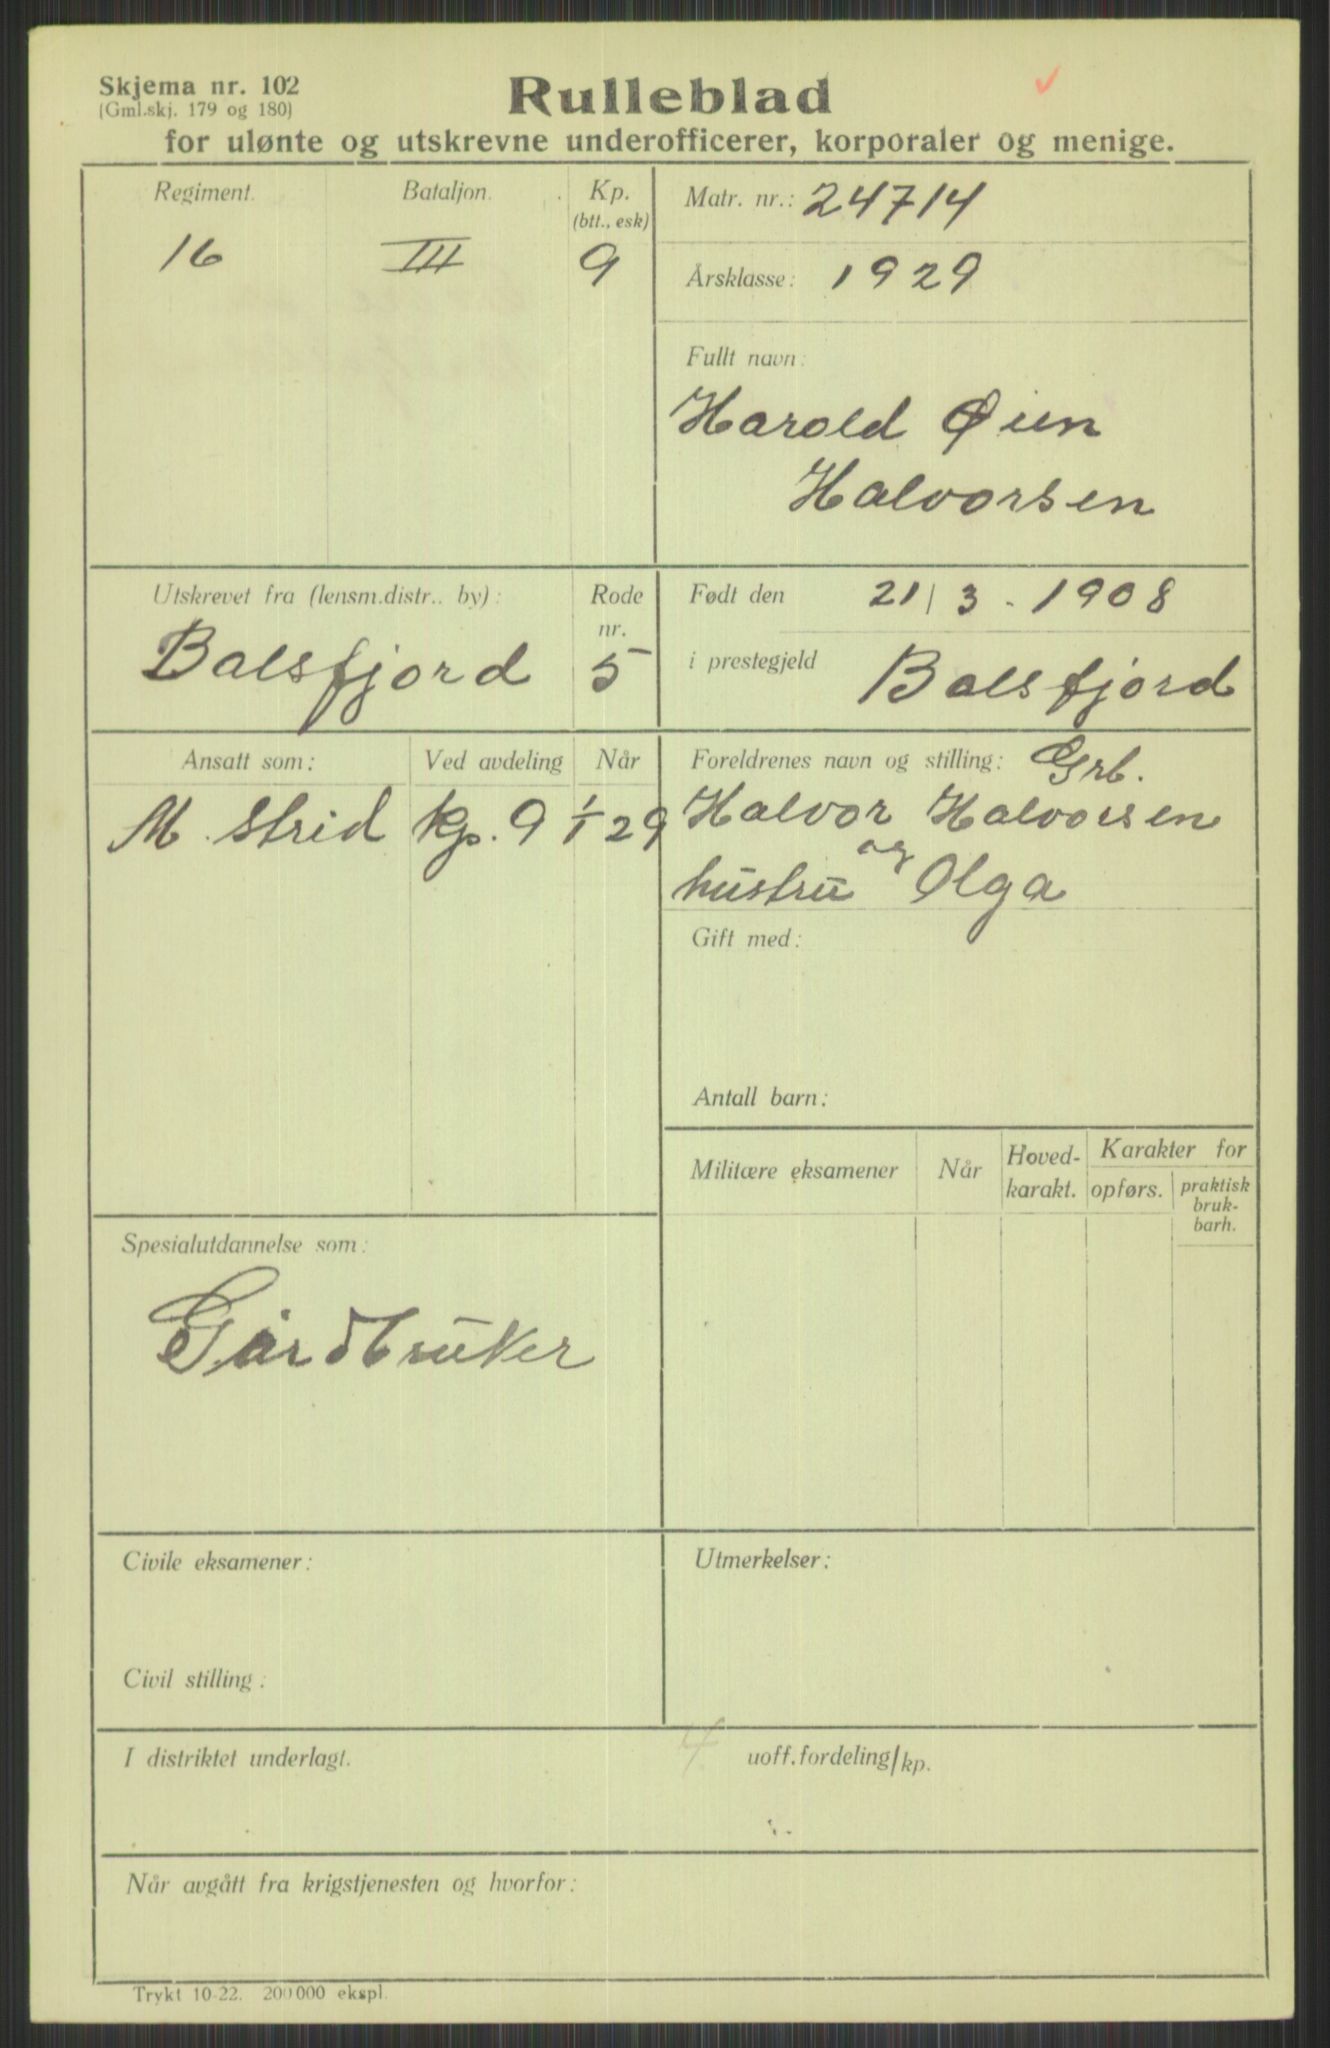 Skjema nr. 102
(Gml.skj. 179 og 180)
Rulleblad
for ulønte og utskrevne underofficerer, korporaler og menige.
Regiment.
Bataljon.
Kp.
(btt., esk)
16
III
9
Matr. nr.: 24714
Årsklasse: 1929
Fullt navn:
Harald Øien
Halvorsen
Utskrevet fra (lensm.distr.. by):
Rode
nr.
Balsfjord
5
Født den 21/3 - 1908
i prestegjeld Balsfjord
Ansatt som:
Ved avdeling
Når
M. strid
Kp. 9
1/1 29
Foreldrenes navn og stilling: Grb.
Halvor Halvorsen
og
hustru Olga
Gift med:
Antall barn:
Militære eksamener
Når
Hoved-
karakt.
Karakter for
opførs.
praktisk
bruk-
barh.
Spesialutdannelse som:
Gårdbruker
Civile eksamener:
Utmerkelser:
Civil stilling:
I distriktet underlagt.
4
uoff.fordeling/kp.
Når avgått fra krigstjenesten og hvorfor:
Trykt 10-22. 200 000 ekspl.